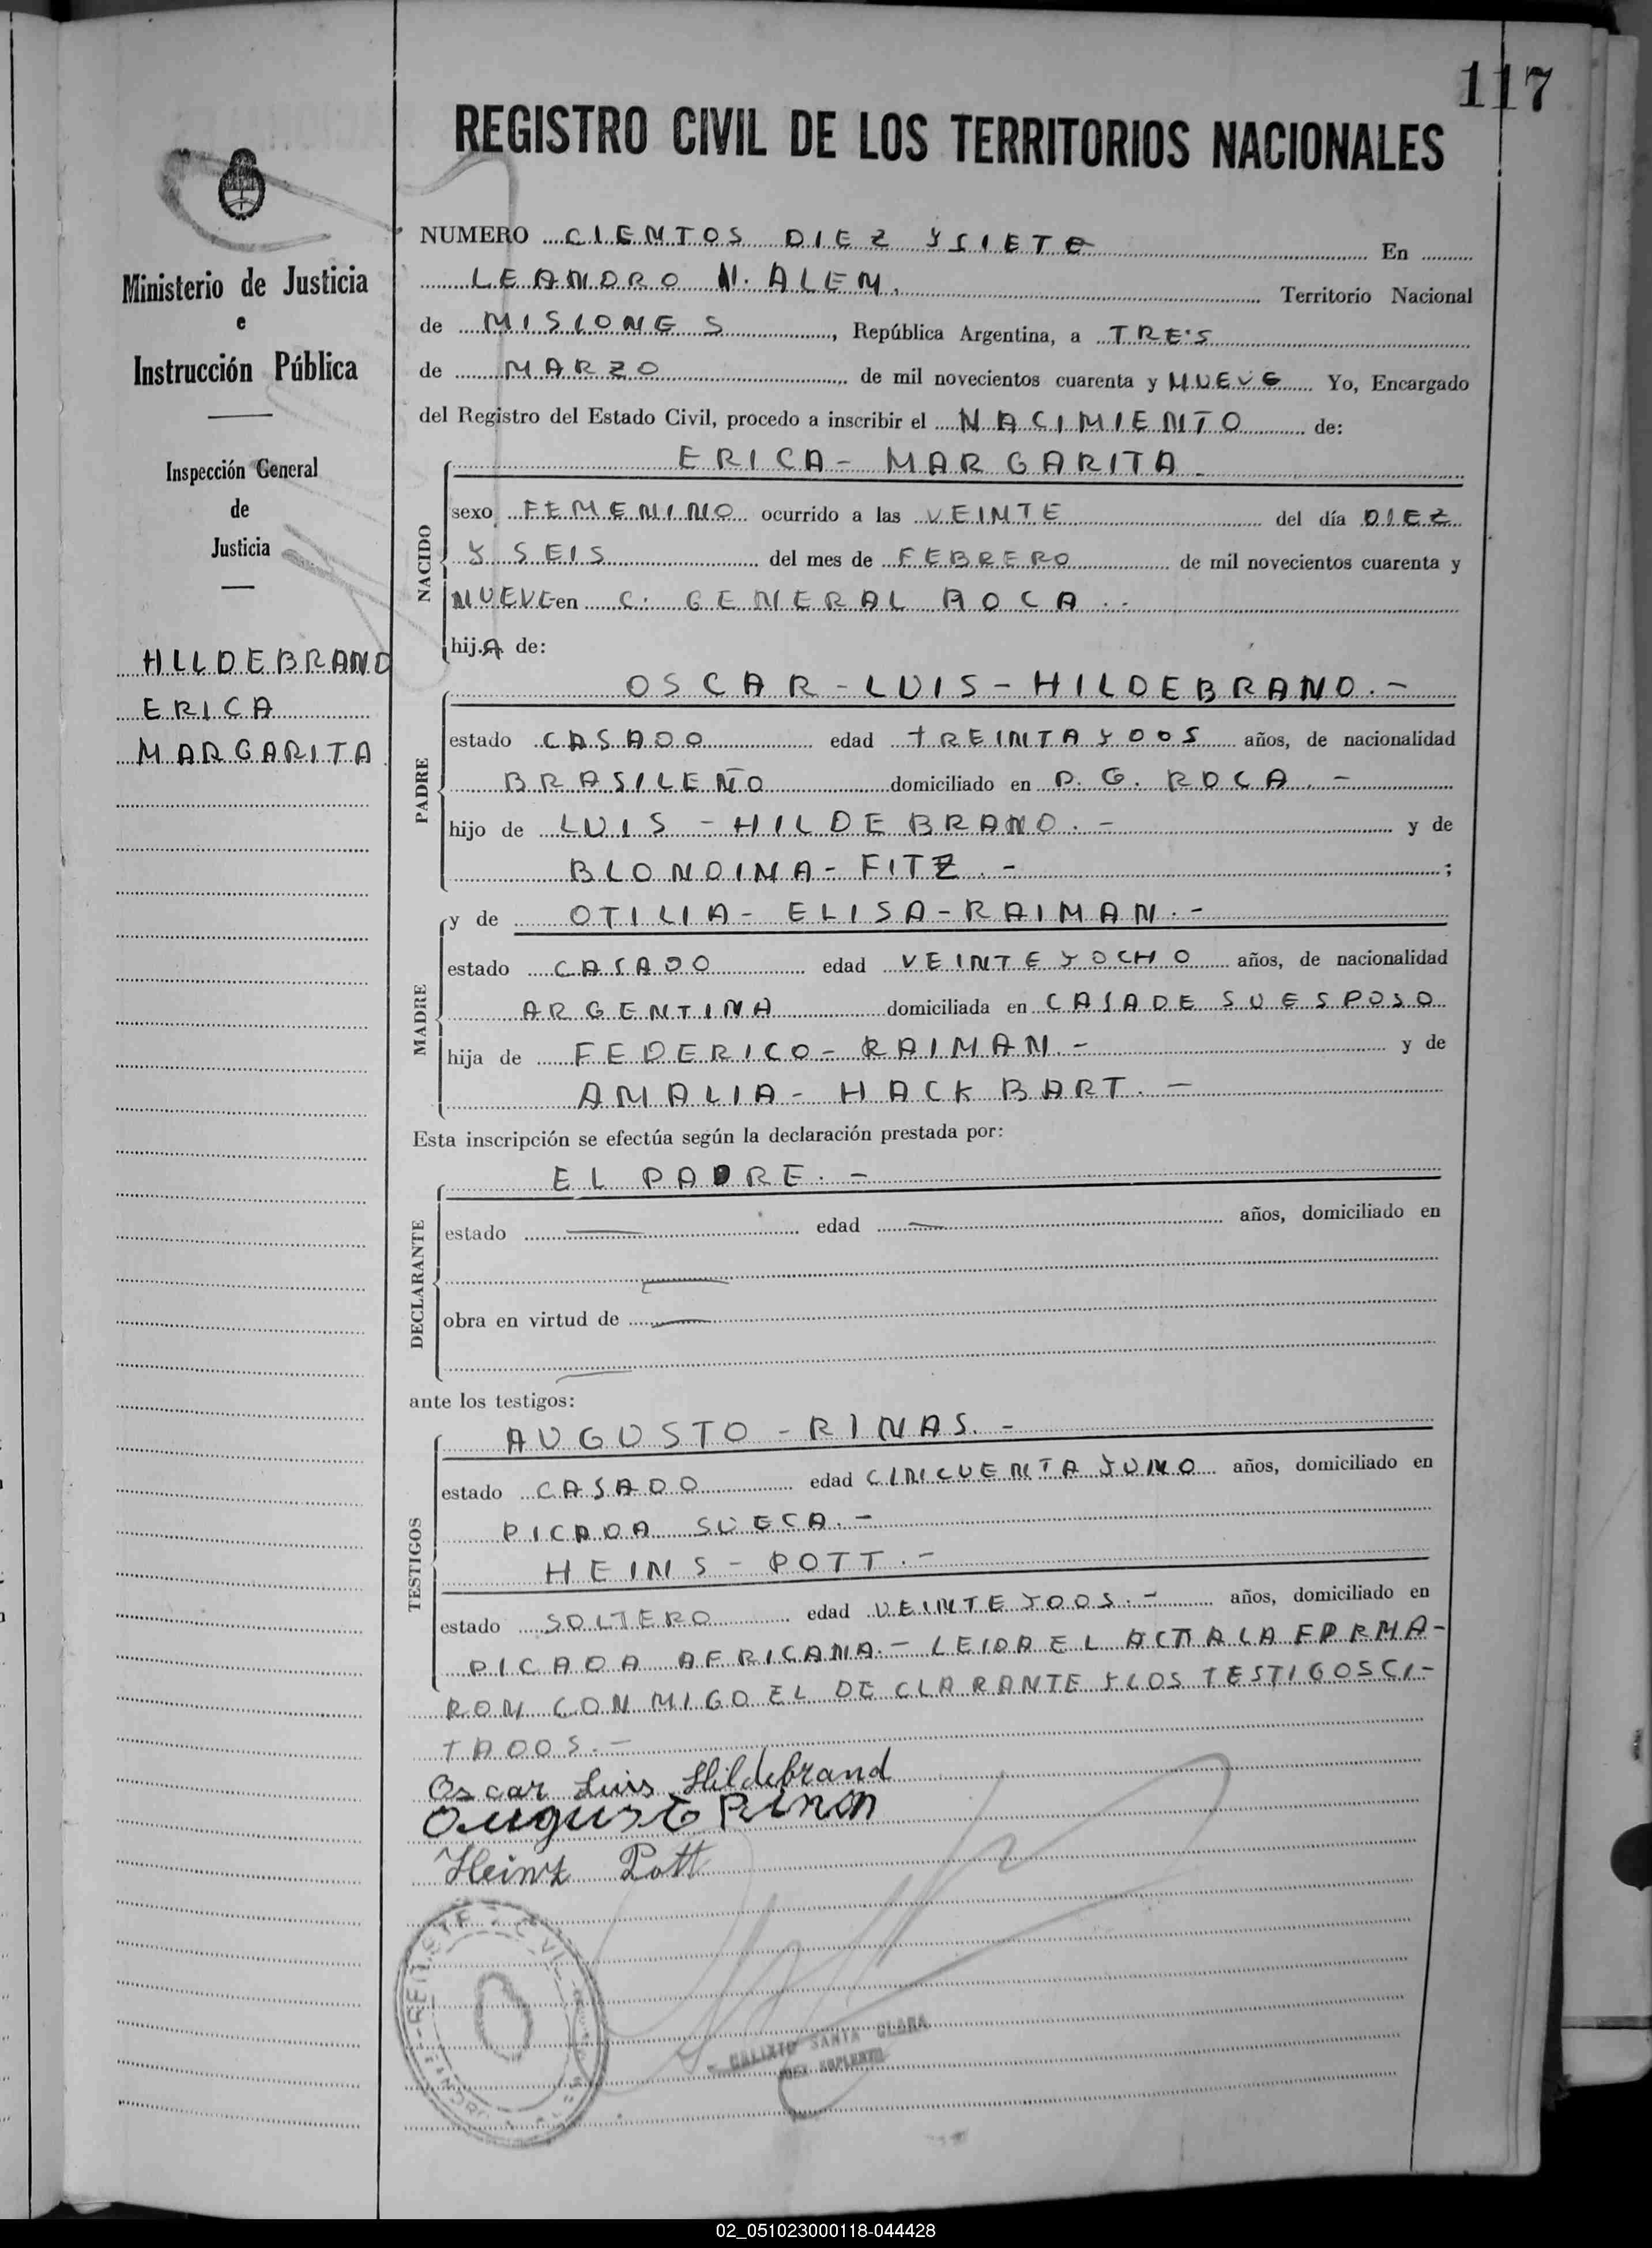 117
REGISTRO CIVIL DE LOS TERRITORIOS NACIONALES
Ministerio de Justicia
e
Instrucción Pública
Inspección General
de
Justicia
HILDEBRAND
ERICA
MARGARITA
NUMERO CIENTOS DIEZ Y SIETE En
LEANDRO N. ALEM. Territorio Nacional
de MISIONES, República Argentina, a TRES
de MARZO de mil novecientos cuarenta y NUEVE Yo, Encargado
del Registro del Estado Civil, procedo a inscribir el NACIMIENTO de:
ERICA - MARGARITA
NACIDO
sexo FEMENINO ocurrido a las VEINTE del día DIEZ
Y SEIS del mes de FEBRERO de mil novecientos cuarenta y
NUEVE en C. GENERAL ROCA..
hij.A de:
OSCAR - LUIS - HILDEBRAND.-
PADRE
estado CASADO edad TREINTA Y DOS años, de nacionalidad
BRASILEÑO domiciliado en P. G. ROCA.-
hijo de LUIS - HILDEBRAND.- y de
BLONDINA - FITZ.- ;
y de OTILIA - ELISA - RAIMAN.-
MADRE
estado CASADO edad VEINTE Y OCHO años, de nacionalidad
ARGENTINA domiciliada en CASA DE SU ESPOSO
hija de FEDERICO - RAIMAN.- y de
AMALIA - HACKBART.-
Esta inscripción se efectúa según la declaración prestada por:
EL PADRE.-
DECLARANTE
estado — edad — años, domiciliado en
—
obra en virtud de —
ante los testigos:
AUGUSTO - RINAS.-
TESTIGOS
estado CASADO edad CINCUENTA Y UNO años, domiciliado en
PICADA SUECA.-
HEINS - POTT.-
estado SOLTERO edad VEINTE Y DOS.- años, domiciliado en
PICADA AFRICANA.- LEIDA EL ACTA LA FIRMA-
RON CON MIGO EL DECLARANTE Y LOS TESTIGOS CI-
TADOS.-
Oscar Luis Hildebrand
Augusto
Heinz Pott
CALIXTO SANTA CLARA
JUEZ SUPLENTE
02_051023000118-044428